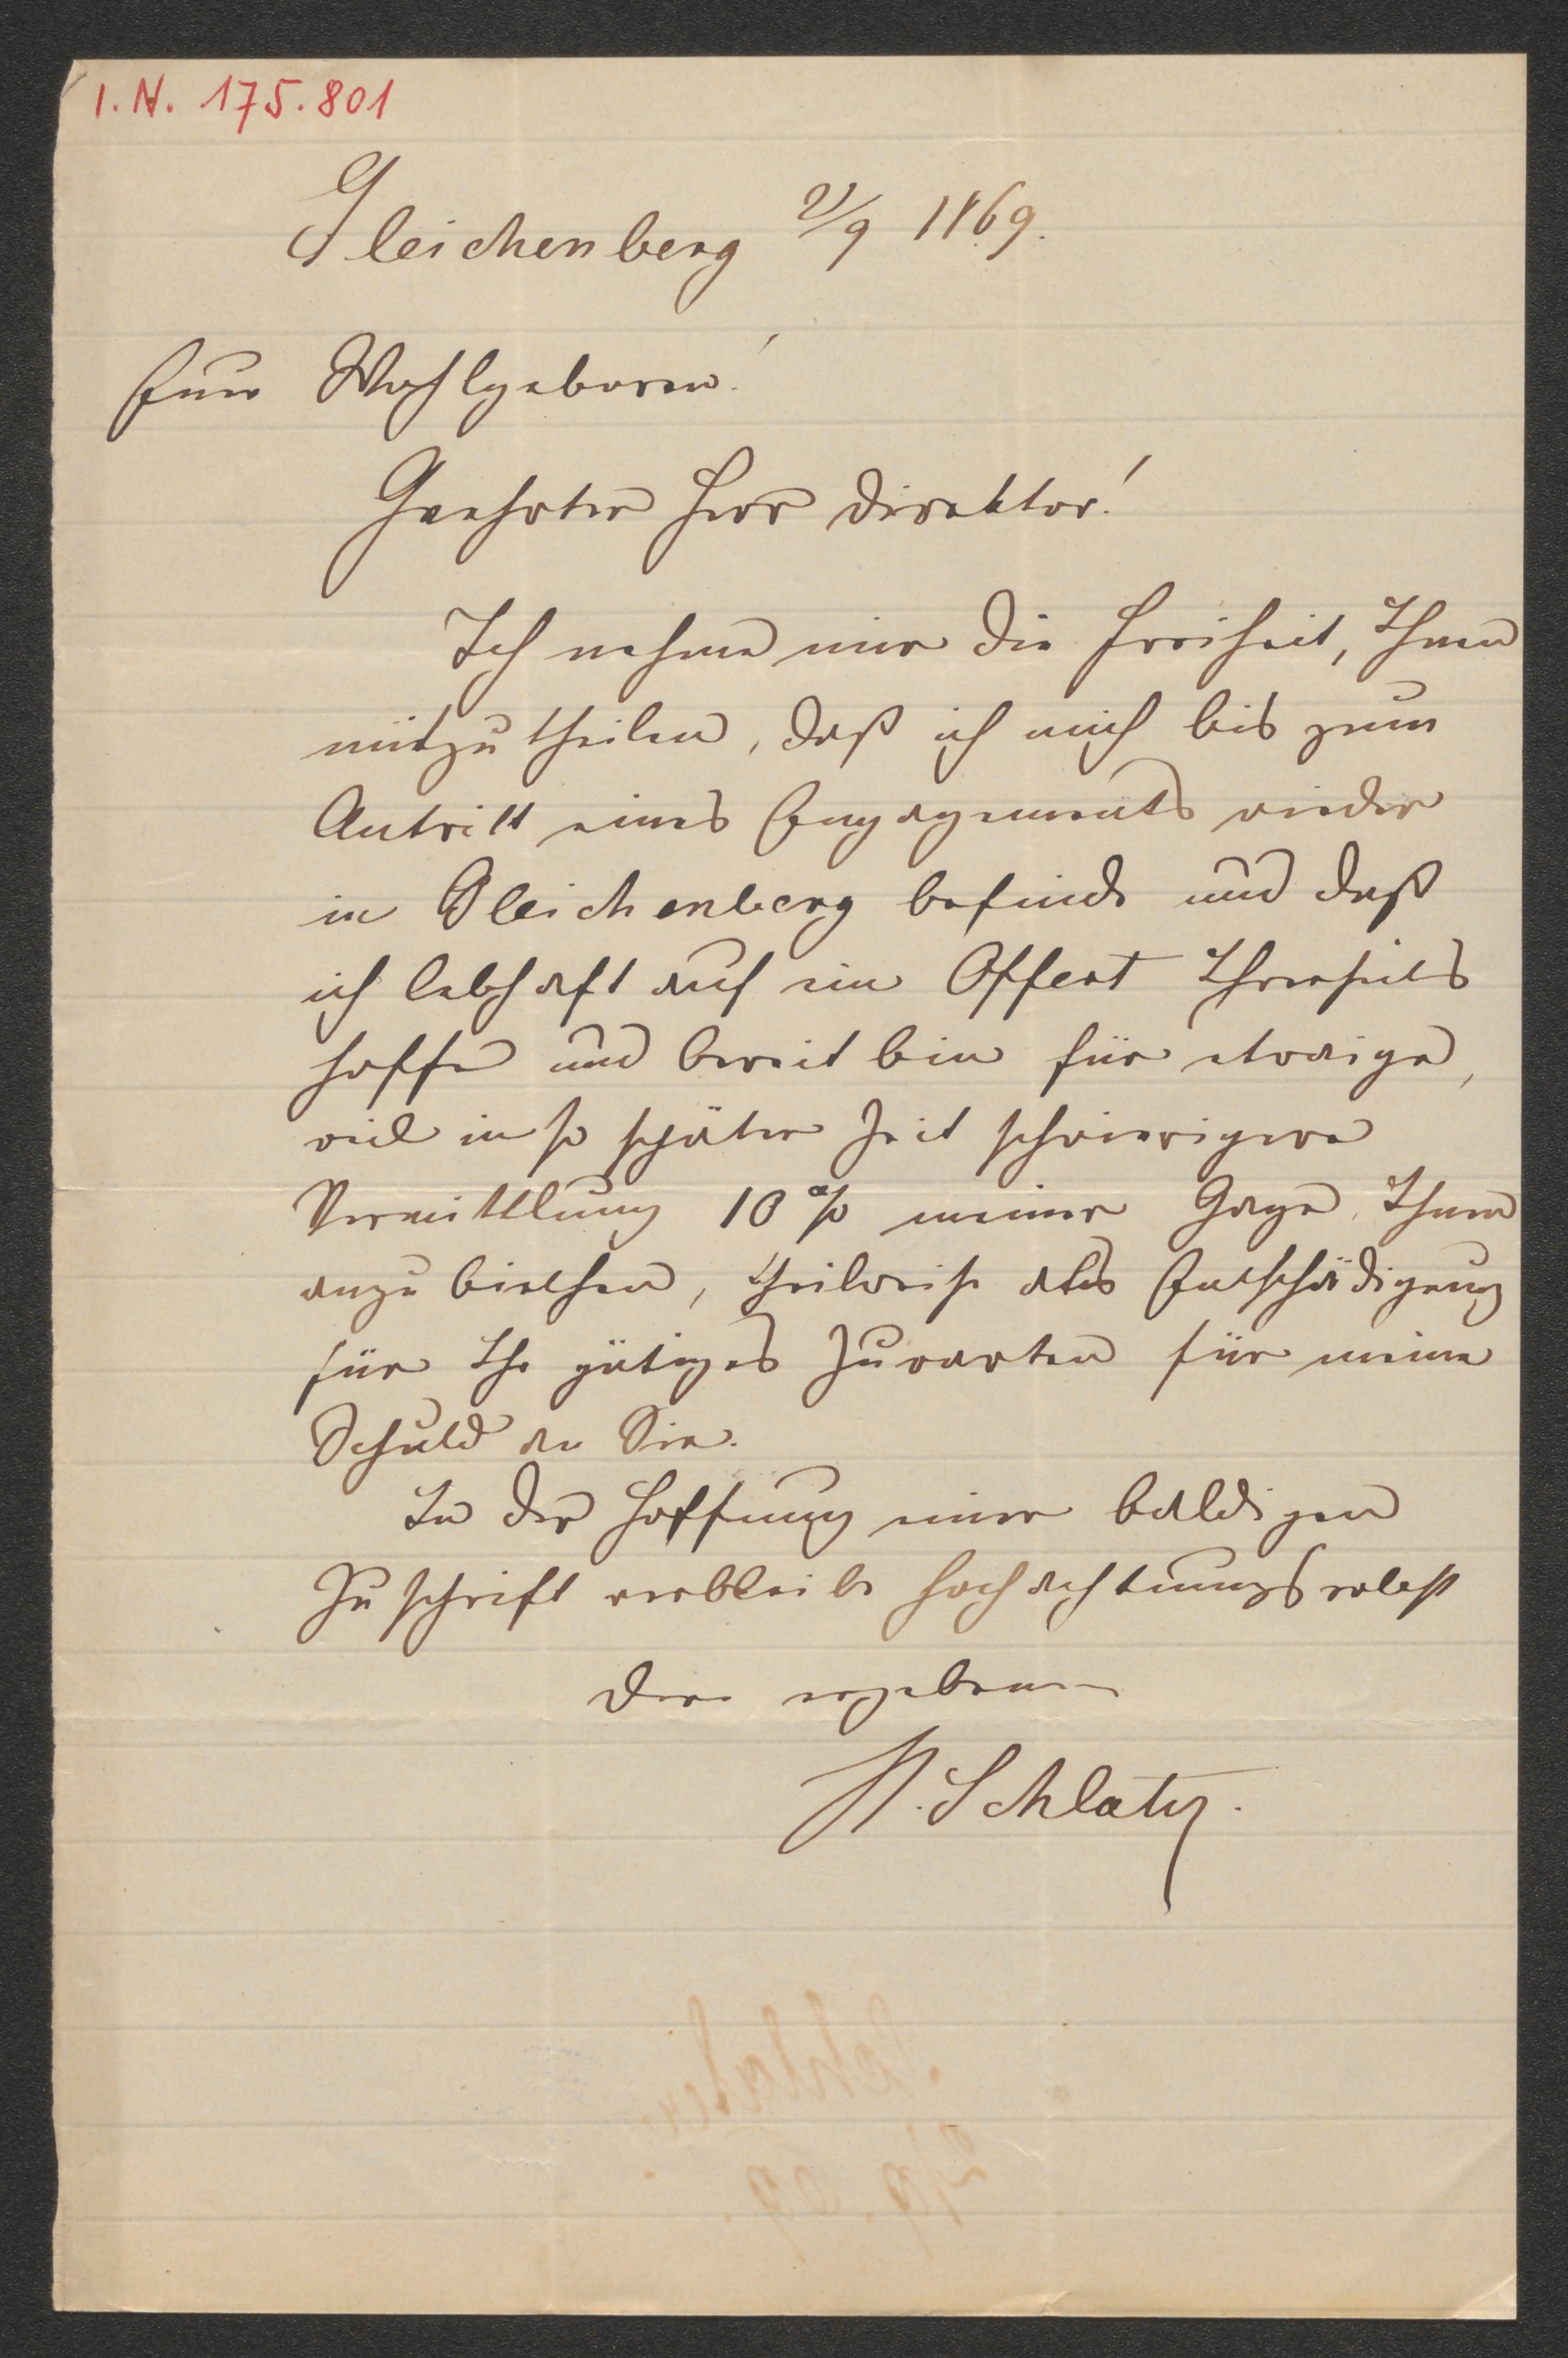 I. N. 175.801
Gleichenberg 2/9 1869.
Euer Wohlgeboren!
Geehrter Herr Direktor!
Ich nehme mir die Freiheit, Ihnen
mitzutheilen, daß ich mich bis zum
Antritt eines Engagements wieder
in Gleichenberg befinde und daß
ich lebhaft auf ein Offert Ihrerseits
hoffe und bereit bin für etwaige,
weil in so später Zeit schwierigere
Vermittlung 10% meiner Gage Ihnen
anzubiethen, theilweise als Entschädigung
für Ihr gütiges Zuwarten für meine
Schuld an Sie.
In der Hoffnung einer baldigen
Zuschrift verbleibe hochachtungsvollst
Ihr ergebener
Schlater
2/9. 69.